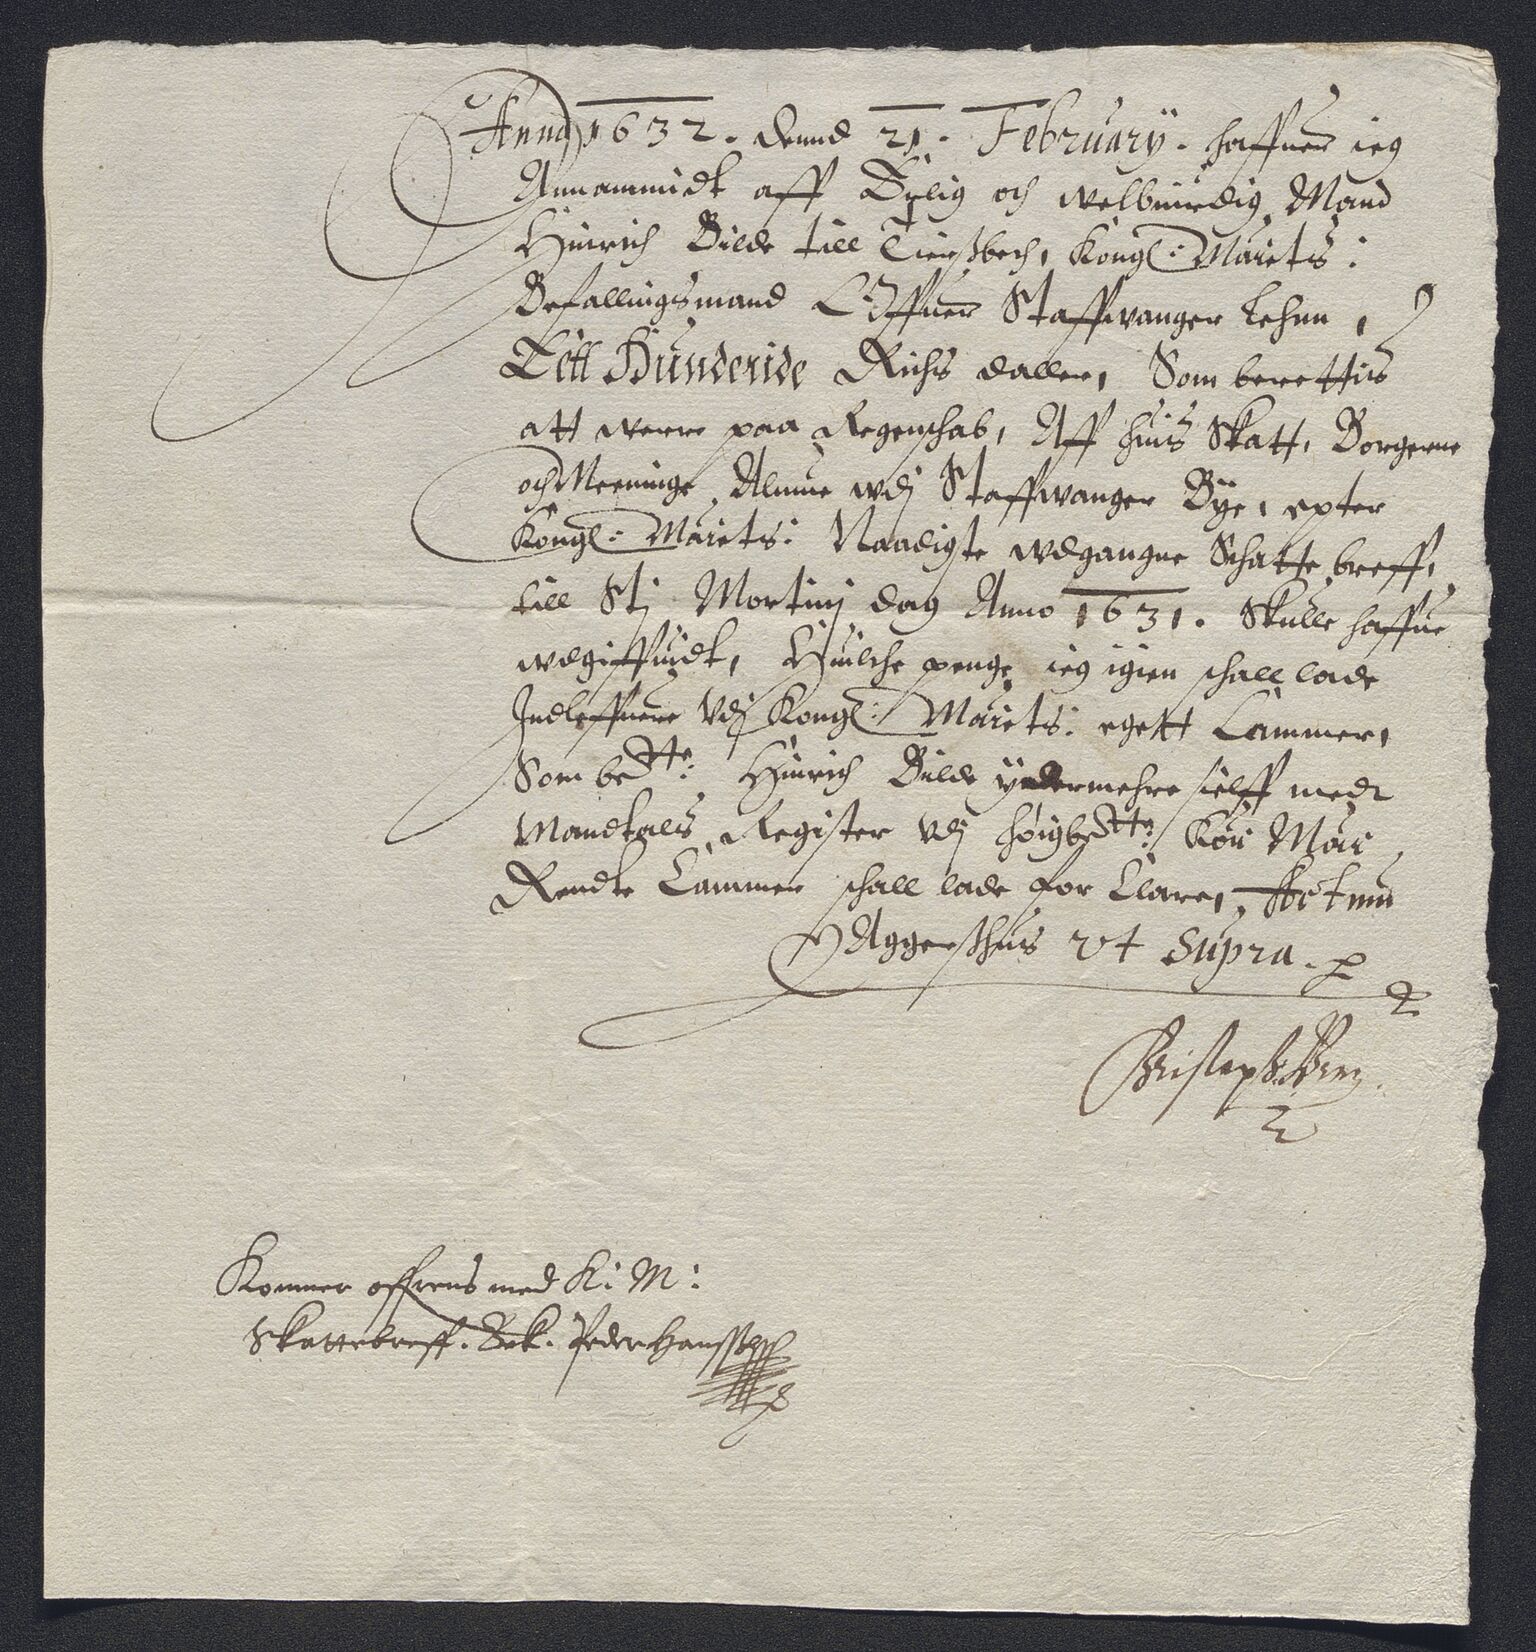 Anno 1632. dennd 21. February. haffuer ieg
Annammidt aff Erlig och welbiurdig Mand
Hinrich Bilde till Tierßbech, Kongl: Maiets:
Befallingsmand Offuer Staffwanger Lehnn,
Ett Hunderide Richs daller, Som berettis
att werre paa Regenschab, Aff huis Skatt, Borgerne
och Meeninge Almue wdj Staffwanger Bÿe, epter
Kongl: Maiets: Naadigste wdgangne Schatte breff,
till Stj Mortinj dag Anno 1631. Skulle haffue
wdgiffuidt, Huilche penge ieg igien schall lade
Indleffuere Vdj Kongl: Maiets: egett Cammer,
Som bedtte: Hinrich Bilde ÿdermehre sielff medt
Mandtals Register Vdj høigbedtte: Kou: Mai:
Rendte Cammer schall lade for Clare, Actum
Aggerßhuis vt Supra.
Kommer offrens med K: M:
Skattebreff. Bek. Peder Hanssen